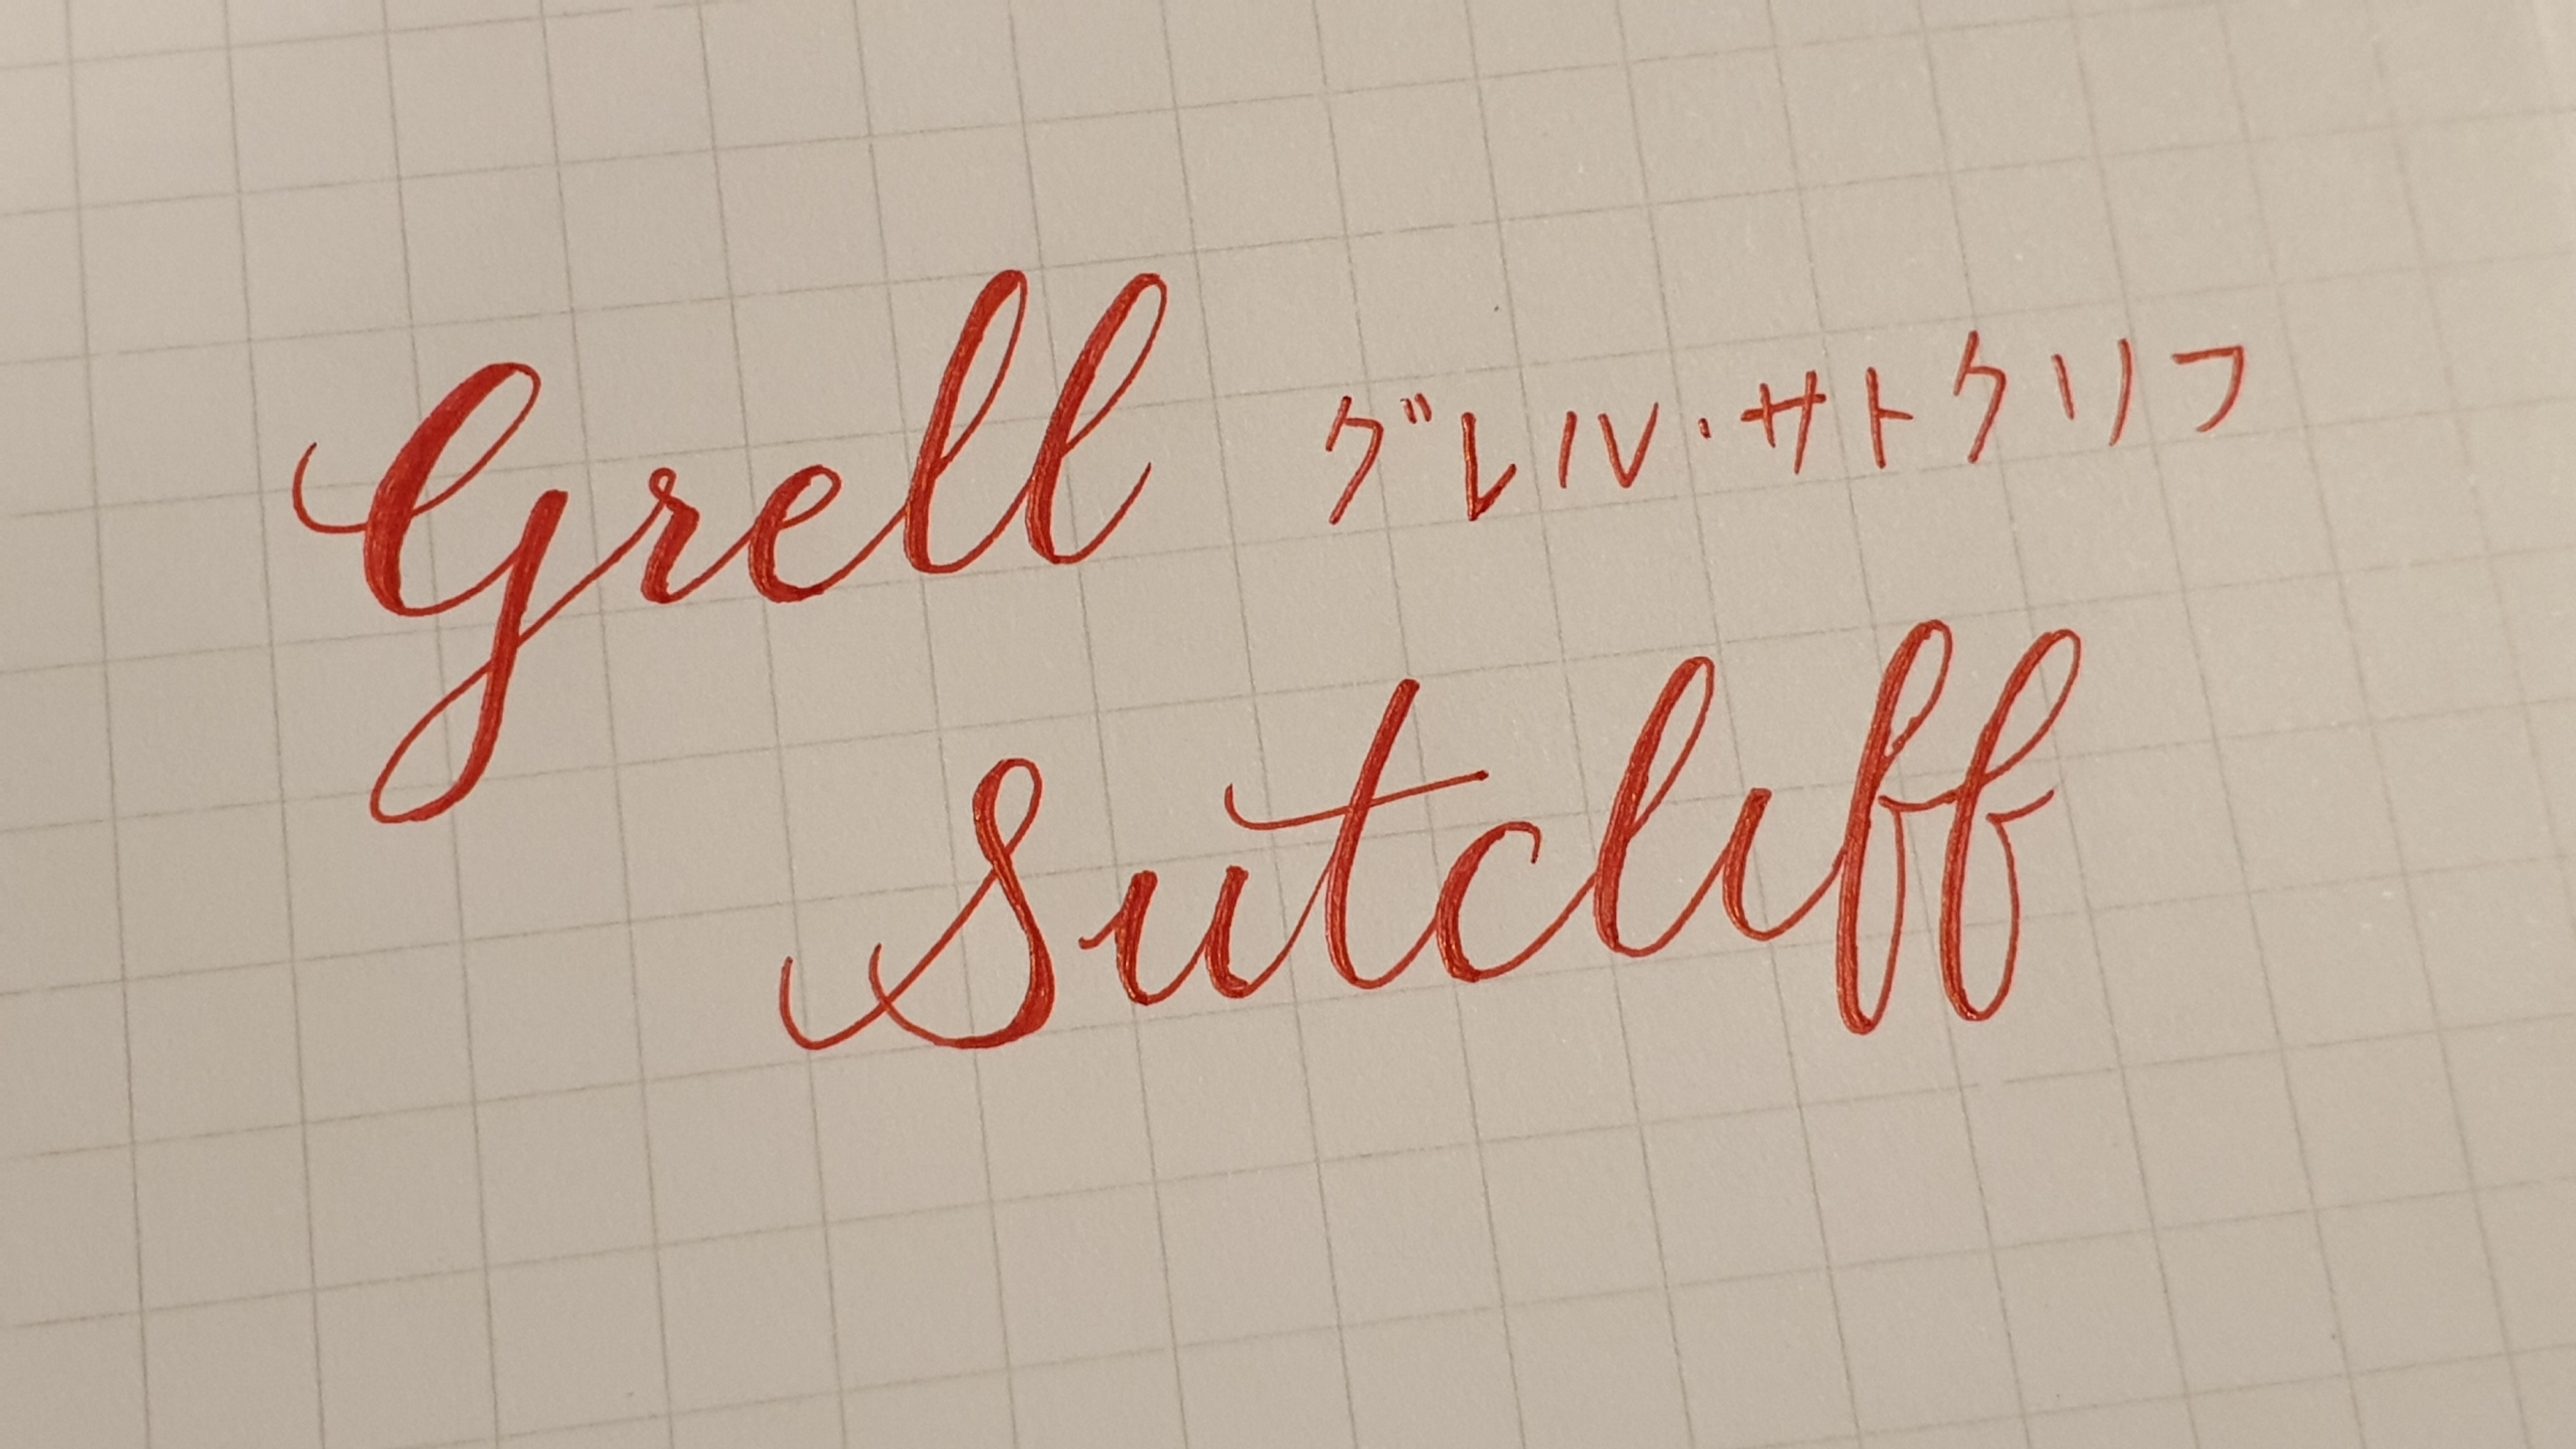 Grell
グレル・サトクリフ
Sutcliff